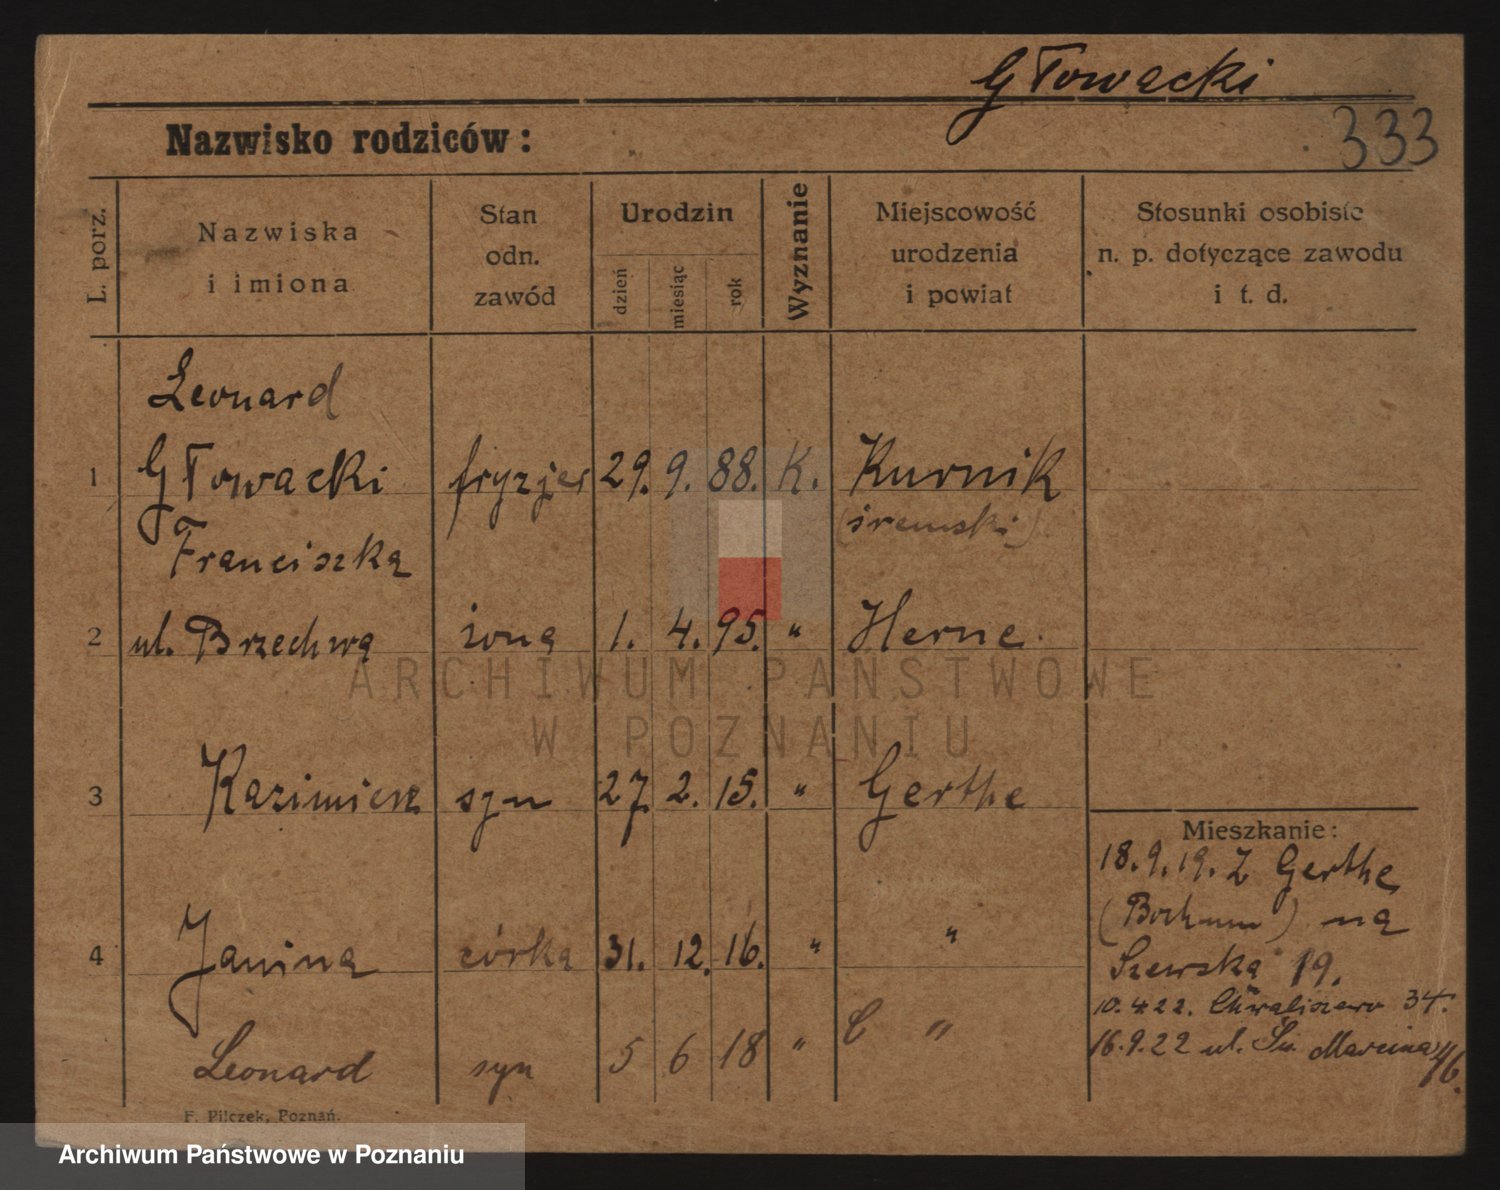 Głowacki
Nazwisko rodziców:
333
L. porz.
Nazwiska
i imiona
Stan
odn.
zawód
Urodzin
dzień
miesiąc
rok
Wyznanie
Miejscowość
urodzenia
i powiat
Stosunki osobiste
n. p. dotyczące zawodu
i t. d.
Leonard
1 Głowacki fryzjer 29. 9. 88. K. Kurnik
(śremski)
Franciszka
2 ul. Brzechwa żona 1. 4. 95. " Herne.
ARCHIWUM PAŃSTWOWE
W POZNANIU
3 Kazimierz syn 27. 2. 15. " Gerthe
4 Janina córka 31. 12. 16. " "
Leonard syn 5 6 18 " "
Mieszkanie:
18.9.19. Z Gerthe
(Bochum) na
Szewska 19.
10.4.22. Chwaliszewo 34.
16.9.22 ul. Św. Marcina 46.
F. Pilczek, Poznań.
Archiwum Państwowe w Poznaniu